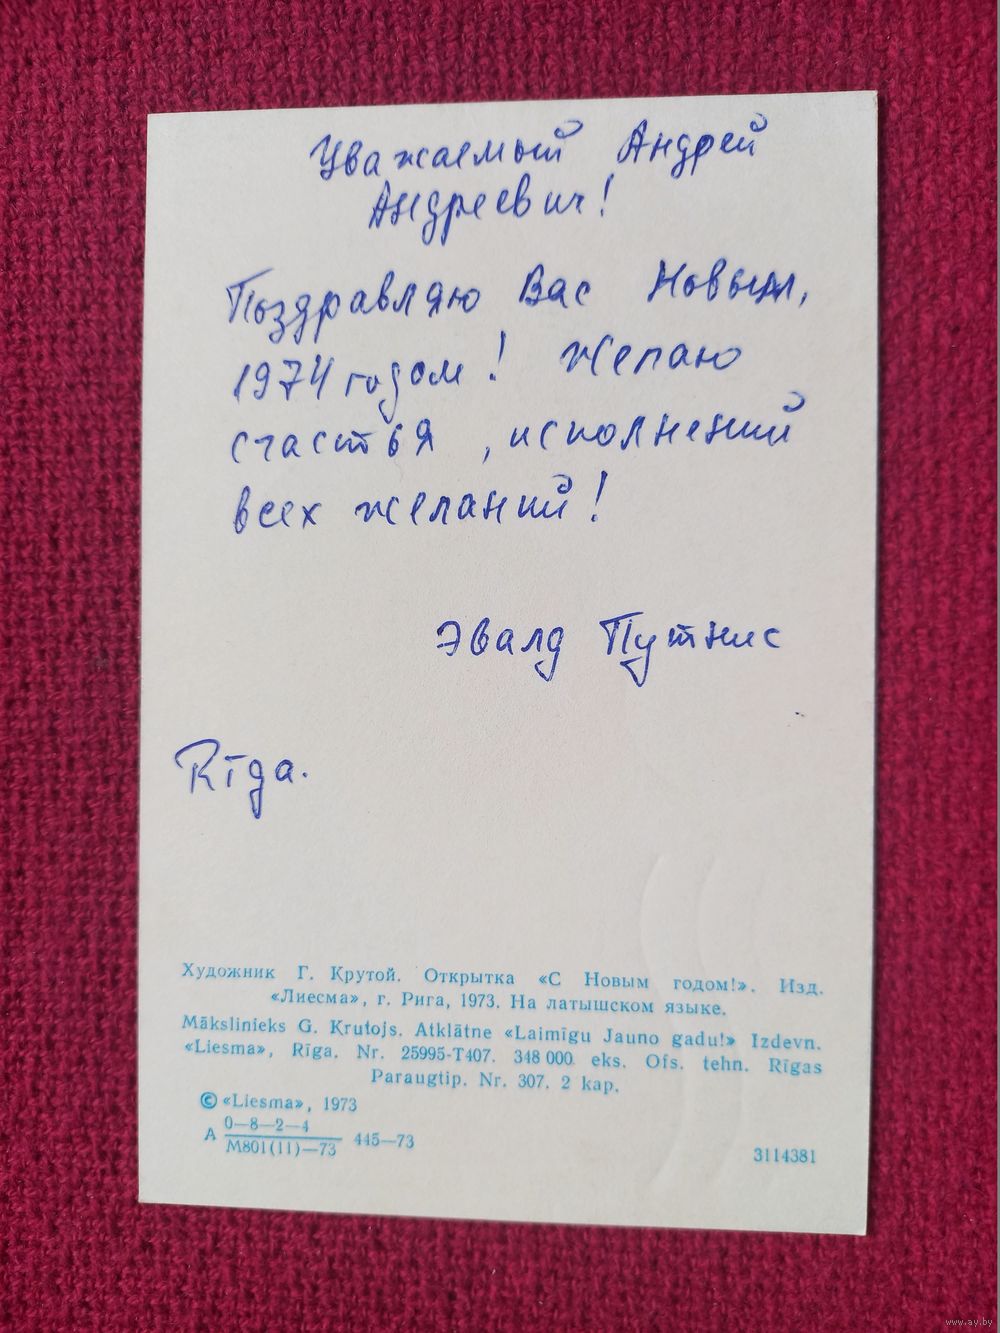 Уважаемый Андрей
Андреевич!
Поздравляю Вас Новым,
1974 годом! Желаю
счастья, исполнений
всех желаний!
Эвалд Путнис
Rīga.
Художник Г. Крутой. Открытка «С Новым годом!». Изд.
«Лиесма», г. Рига, 1973. На латышском языке.
Mākslinieks G. Krutojs. Atklātne «Laimīgu Jauno gadu!» Izdevn.
«Liesma», Rīga. Nr. 25995-T407. 348 000 eks. Ofs. tehn. Rīgas
Paraugtip. Nr. 307. 2 kap.
© «Liesma», 1973
А 0—8—2—4
М801(11)—73 445—73
3114381
www.ay.by